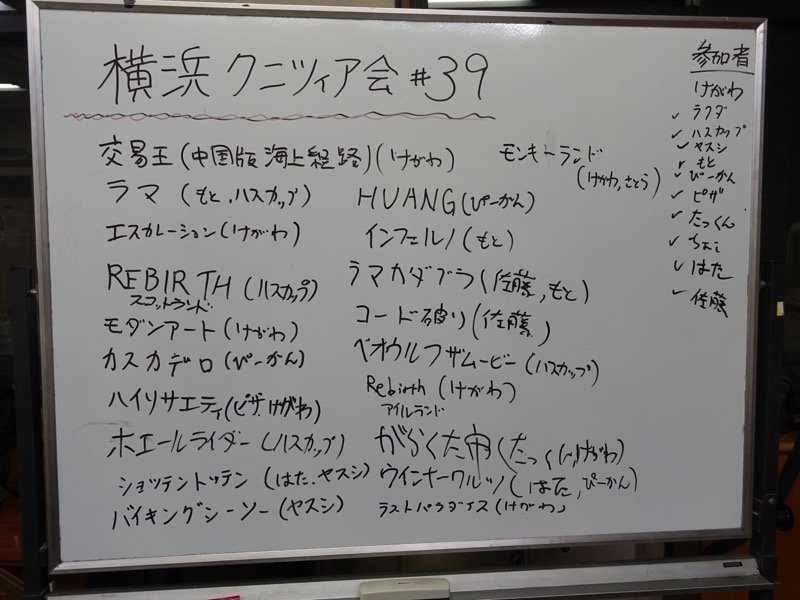 横浜クニツィア会 #39
交易王(中国版 海上経路)(けがわ)
ラマ (もと、ハスカップ)
エスカレーション(けがわ)
REBIRTH (ハスカップ)
スコットランド
モダンアート(けがわ)
カスカデロ(ぴーかん)
ハイソサエティ(ピザ けがわ)
ホエールライダー(ハスカップ)
ショッテントッテン (はた、ヤスシ)
バイキングシーソー(ヤスシ)
モンキーランド
(けがわ, さとう)
HUANG(ぴーかん)
インフェルノ(もと)
ラマカダブラ(佐藤, もと)
コード破り(佐藤)
ベオウルフザムービー(ハスカップ)
Rebirth (けがわ)
アイルランド
がらくた(たっくん, けがわ)
ウインナーワルツ(はた, ぴーかん)
ラストパラダイス(けがわ)
参加者
けがわ
✓ ラクダ
✓ ハスカップ
✓ ヤスシ
✓ もと
✓ ぴーかん
✓ ピザ
✓ たっくん
✓
✓ はた
✓ 佐藤